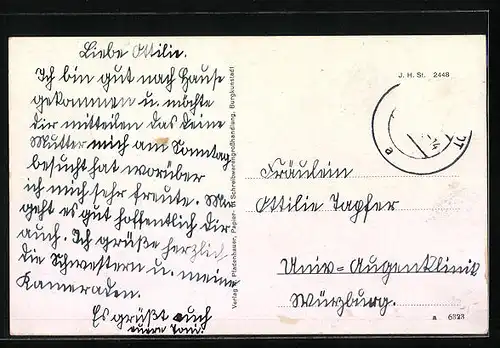 Liebe Ottilie.
Ich bin gut nach Hause
gekommen u. möchte
dir mitteilen das deine
Mutter mich am Sonntag
besucht hat worüber
ich mich sehr freute. Mir
geht es gut hoffentlich dir
auch. Ich grüße herzlich
die Schwestern u. meine
Kameraden.
Es grüßt euch
eure Toni.
Verlag Pfadenhauer, Papier- u. Schreibwarengroßhandlung, Burgkunstadt
J. H. St. 2448
Fräulein
Ottilie Tapfer
Univ=Augenklinik
Würzburg.
a 6823